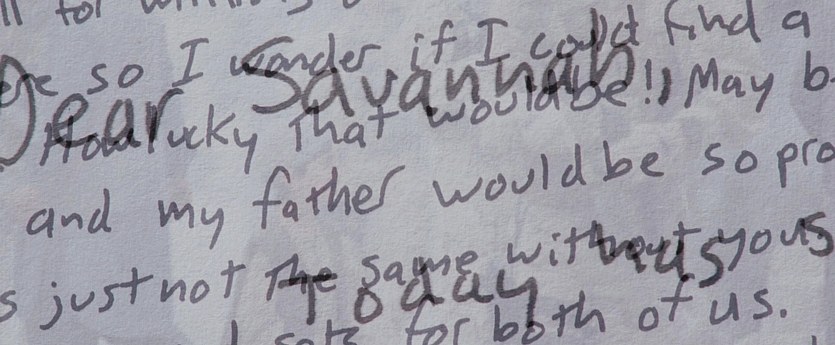 ll for
so I wonder if I could find a
Dear Savannah,
How lucky That would be! May b
and my father would be so pro
s just not the same without you
Today was
for both of us.